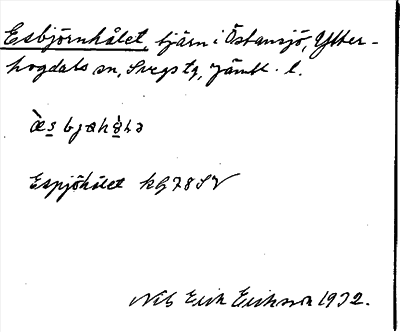 Esbjörnhålet, tjärn i Östansjö, Ytter-
hogdals sn, Svegs tg, Jämtl. l.
Espjöhålet KG78SV
Nils Erik Eriksson 1932.